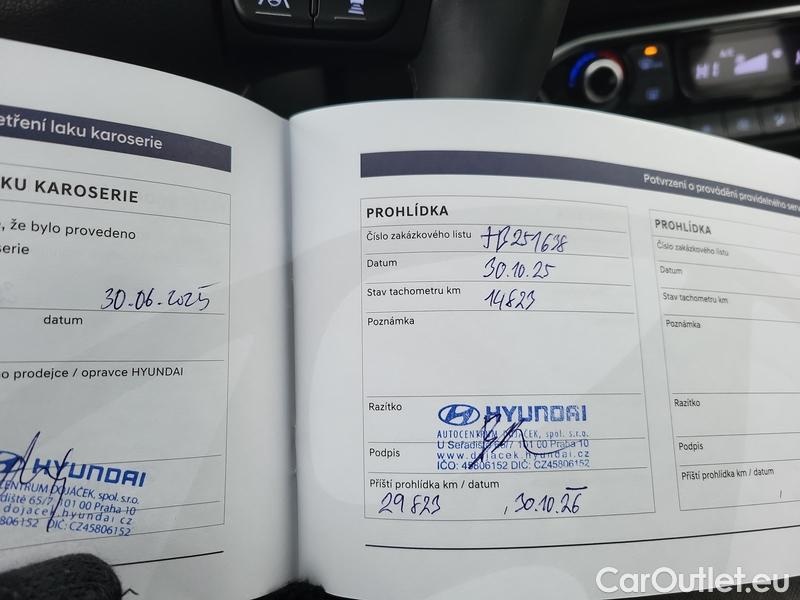 etření laku karoserie
KU KAROSERIE
, že bylo provedeno
serie
30.06.2025
datum
o prodejce / opravce HYUNDAI
HYUNDAI
CENTRUM DOJÁČEK, spol. s.r.o.
diště 65/7, 101 00 Praha 10
dojacek.hyundai.cz
5806152 DIČ: CZ45806152
Potvrzení o provádění pravidelného serv
PROHLÍDKA
Číslo zakázkového listu
Datum 30.10.25
Stav tachometru km 14823
Poznámka
Razítko
HYUNDAI
AUTOCENTRUM DOJÁČEK, spol. s.r.o.
U Seřadiště 65/7 101 00 Praha 10
www.dojacek.hyundai.cz
IČO: 45806152 DIČ: CZ45806152
Podpis
Příští prohlídka km / datum
29823 , 30.10.26
PROHLÍDKA
Číslo zakázkového listu
Datum
Stav tachometru km
Poznámka
Razítko
Podpis
Příští prohlídka km / datum
/
A/C
HI
CarOutlet.eu